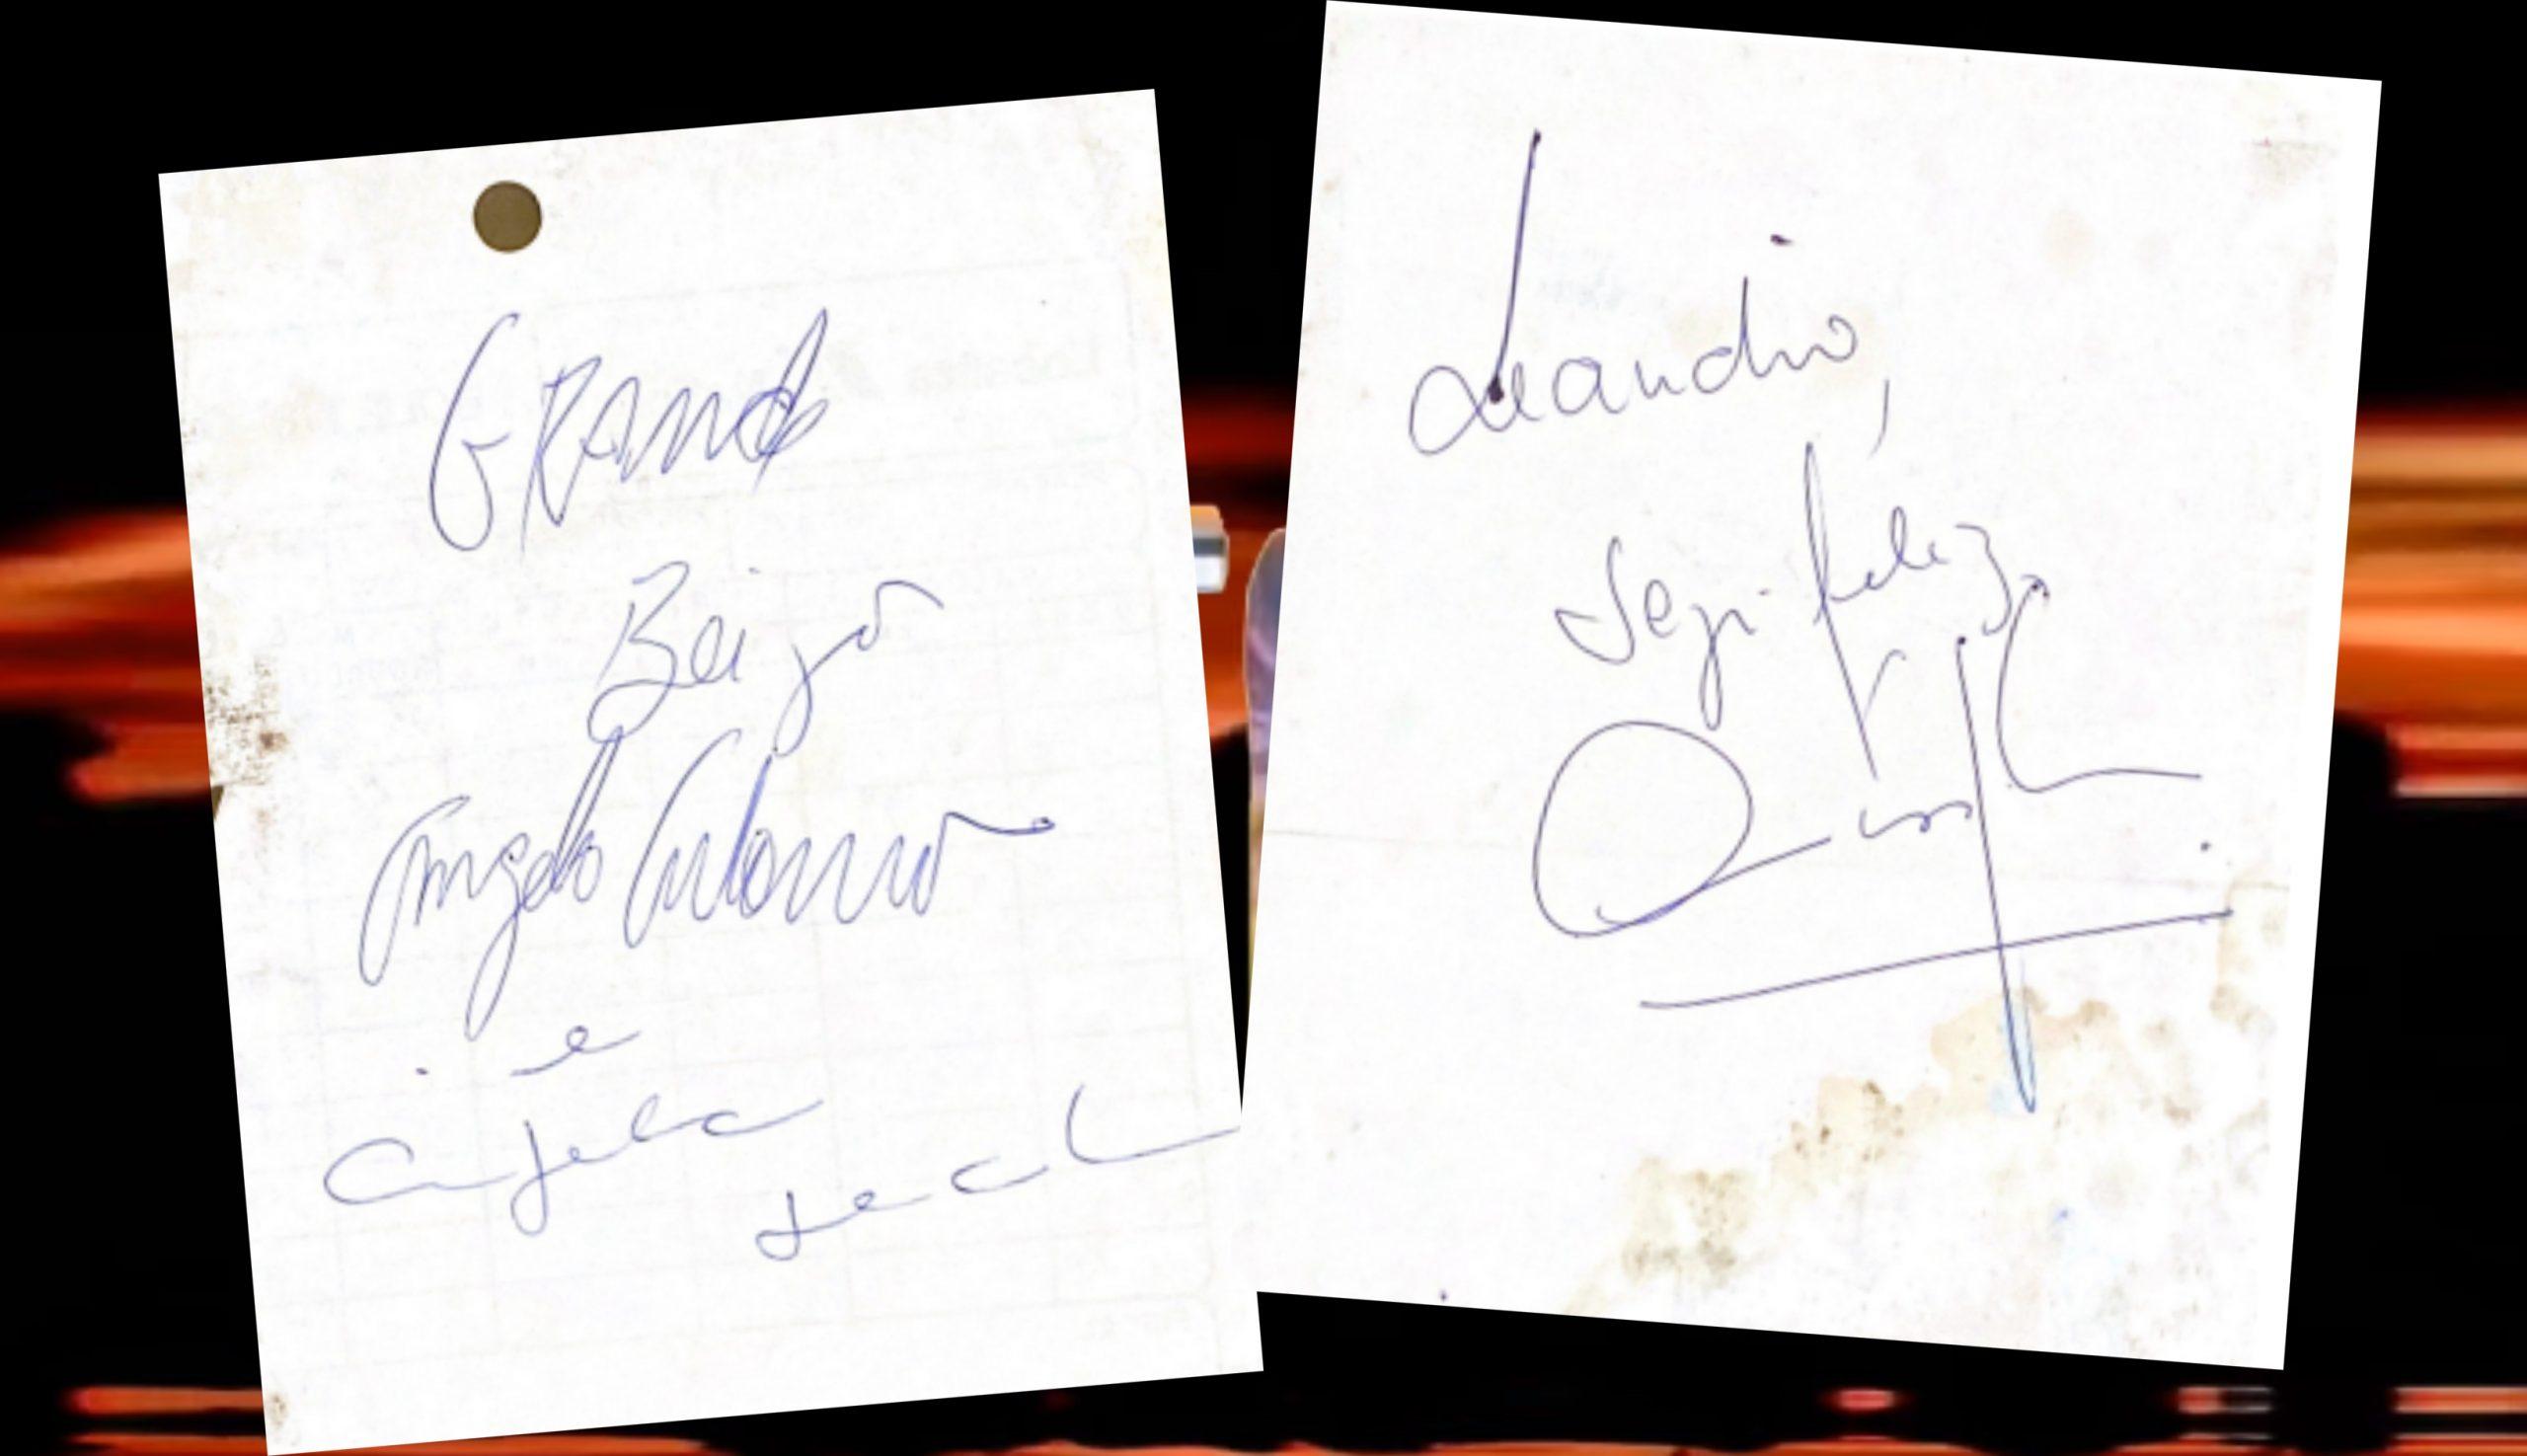 GRANDE
Beijo
Angelo Antonio
e
Angela
Leal
Leandro,
Seja feliz